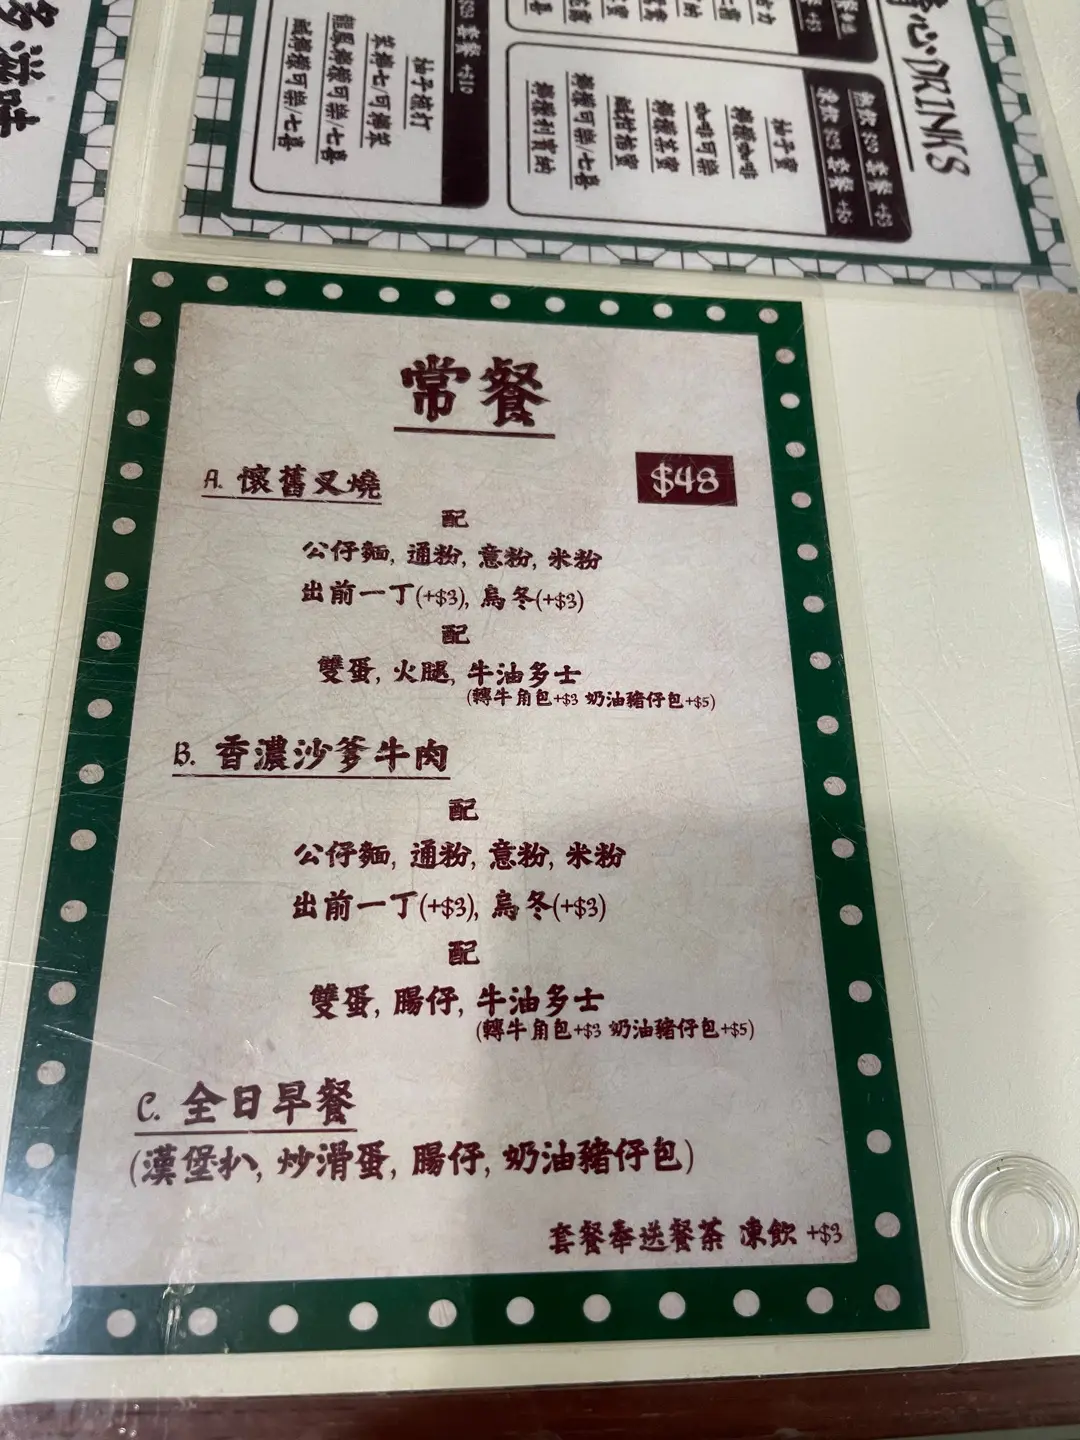 多滋味
心DRINKS
熱飲 $20 套餐 +$3
套餐 +$6
柚子蜜
檸檬咖啡
咖啡可樂
檸檬菜蜜
鹹柑桔蜜
檸檬可樂/七喜
檸檬利賓納
套餐 +$10
柚子梳打
菜檸七/可樂菜
龍鳳檸檬可樂/七喜
鹹檸檬可樂/七喜
常餐
A. 懷舊叉燒
$48
配
公仔麵, 通粉, 意粉, 米粉
出前一丁(+$3), 烏冬(+$3)
配
雙蛋, 火腿, 牛油多士
(轉牛角包+$3 奶油豬仔包+$5)
B. 香濃沙爹牛肉
配
公仔麵, 通粉, 意粉, 米粉
出前一丁(+$3), 烏冬(+$3)
配
雙蛋, 腸仔, 牛油多士
(轉牛角包+$3 奶油豬仔包+$5)
C. 全日早餐
(漢堡扒, 炒滑蛋, 腸仔, 奶油豬仔包)
套餐奉送餐茶 凍飲 +$3